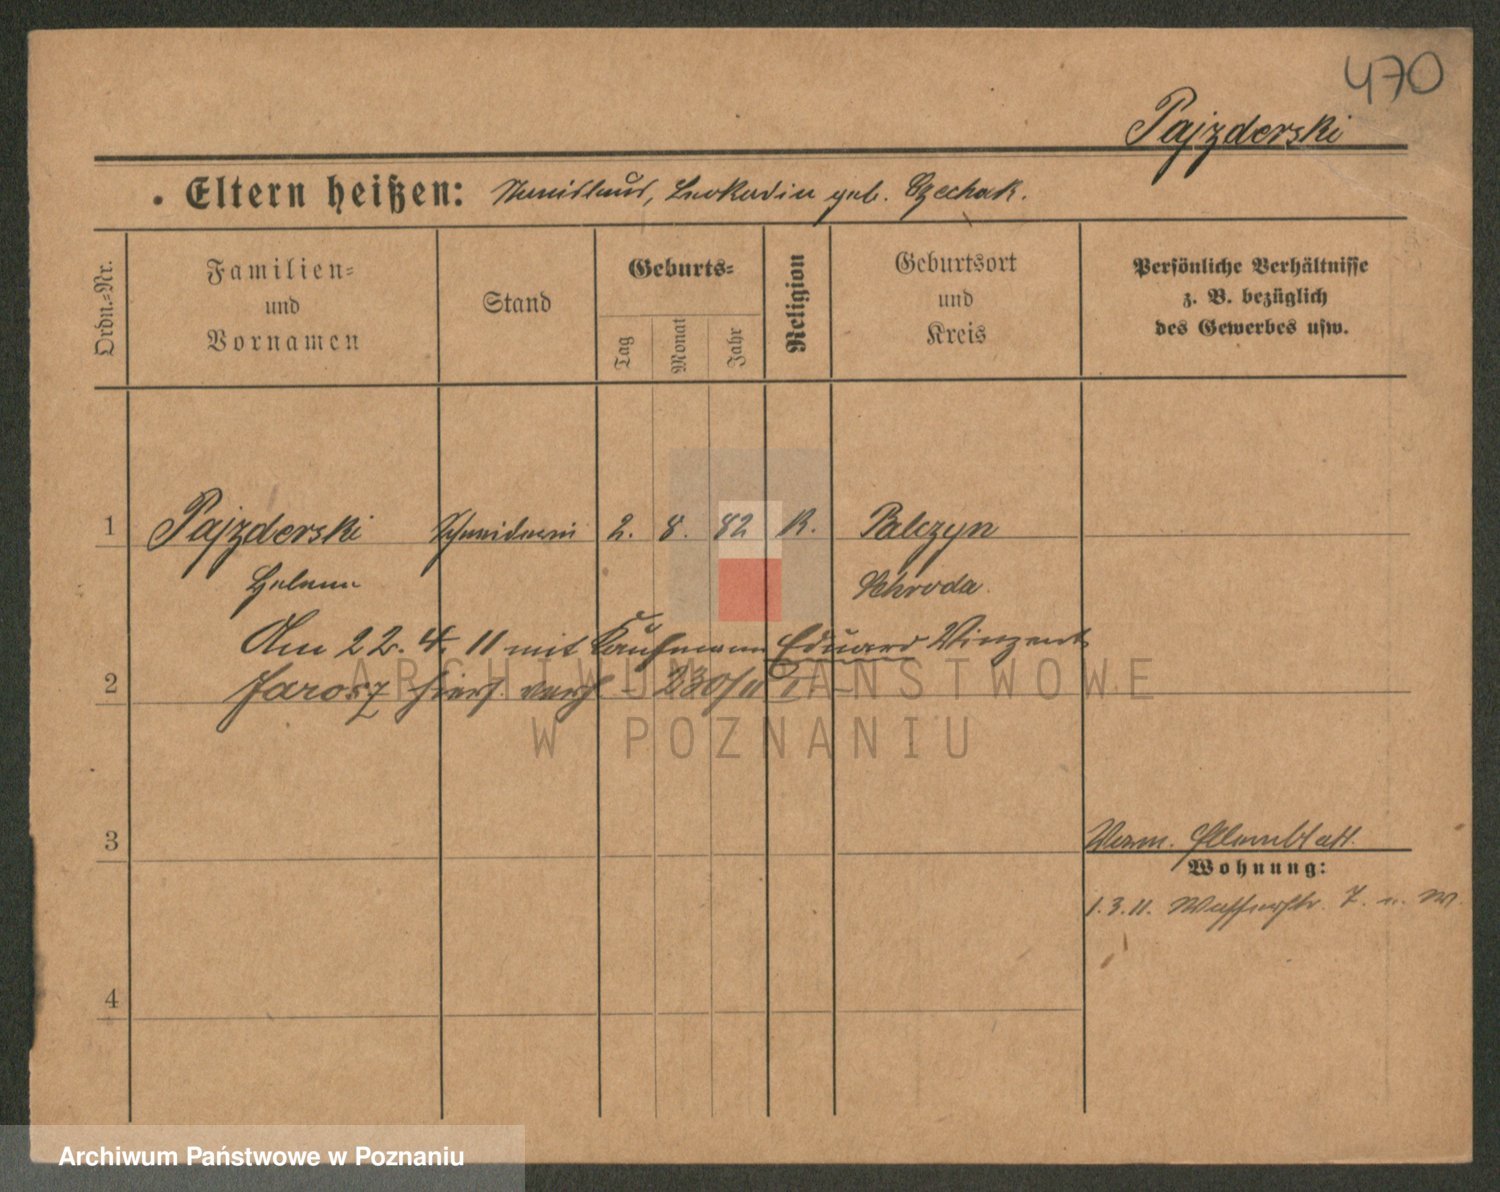 470
Pajzderski
Eltern heißen: Stanislaus, Leokadia geb. Czechak.
Ordn.=Nr.
Familien=
und
Vornamen
Stand
Geburts=
Tag
Monat
Jahr
Religion
Geburtsort
und
Kreis
Persönliche Verhältnisse
z. B. bezüglich
des Gewerbes usw.
1 Pajzderski Schneiderin 2. 8. 82 K. Palczyn
Helena Schroda.
Am 22. 4. 11 mit Kaufmann Eduard Vinzent
2 Jarosz hier verh. - 230/11
3
Verm. Elternblatt.
Wohnung:
1.3.11. Wasserstr. 7.
4
ARCHIWUM PAŃSTWOWE
W POZNANIU
Archiwum Państwowe w Poznaniu